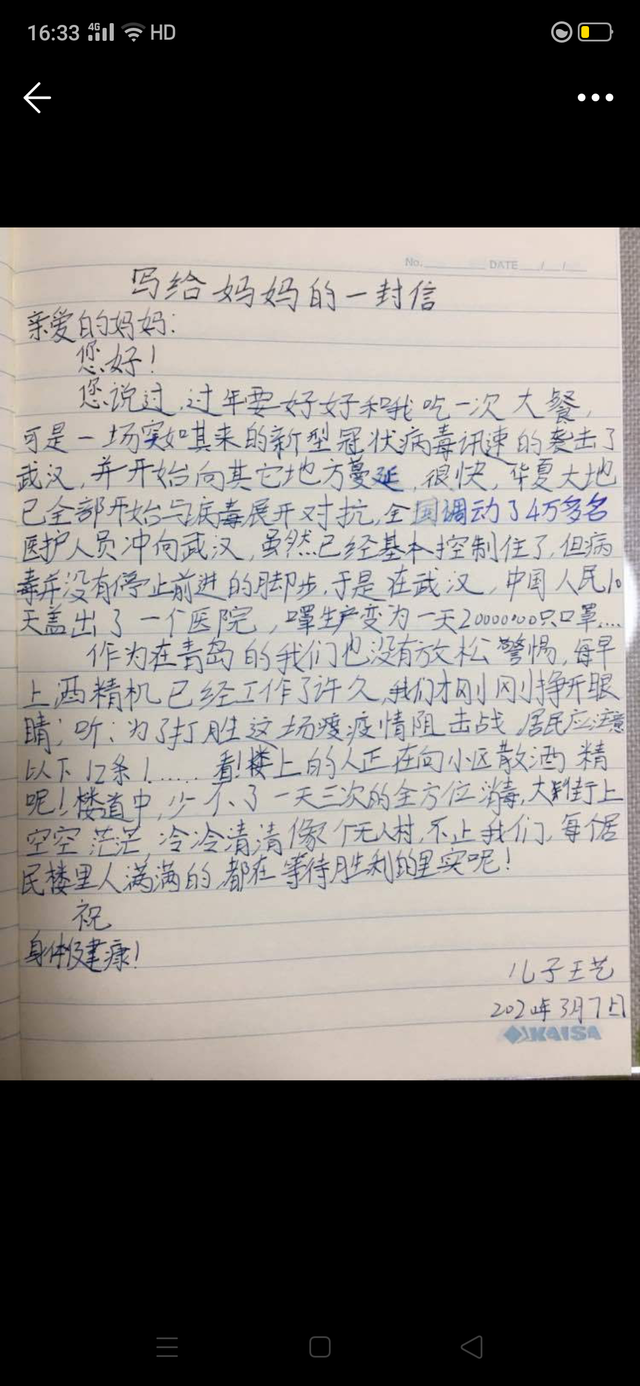 16:33 4G HD
No. DATE / /
写给妈妈的一封信
亲爱的妈妈:
您好!
您说过,过年要好好和我吃一次大餐,
可是一场突如其来的新型冠状病毒讯速的袭击了
武汉,并开始向其它地方蔓延,很快,华夏大地
已全部开始与病毒展开对抗,全国调动了4万多名
医护人员冲向武汉,虽然已经基本控制住了,但病
毒并没有停止前进的脚步,于是在武汉,中国人民10
天盖出了一个医院,罩生产变为一天20000000只口罩....
作为在青岛的我们也没有放松警惕,每早
上洒精机已经工作了许久,我们才刚刚挣开眼
睛;听:为了打胜这场疫情阻击战,居民应注意
以下12条!...... 看!楼上的人正在向小区散洒精
呢!楼道中,少不了一天三次的全方位消毒,大街上
空空茫茫,冷冷清清像个无人村,不止我们,每个居
民楼里人满满的,都在等待胜利的呢!
祝
身体健康!
儿子王艺
2020年3月7日
KAISA